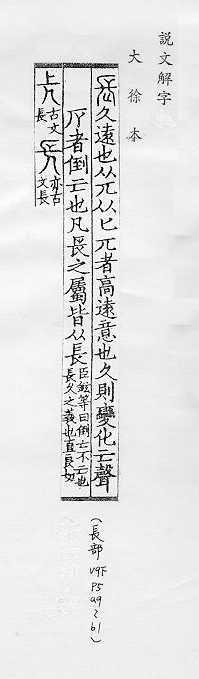 説文解字
大徐本
久遠也从兀从匕兀者高遠意也久則變化亡聲
者倒亡也凡長之屬皆从長臣鉉等曰倒亡不亡也
長久之義也直良切
古文長
亦古文長
(長部 V9下 P5 a9~b1)